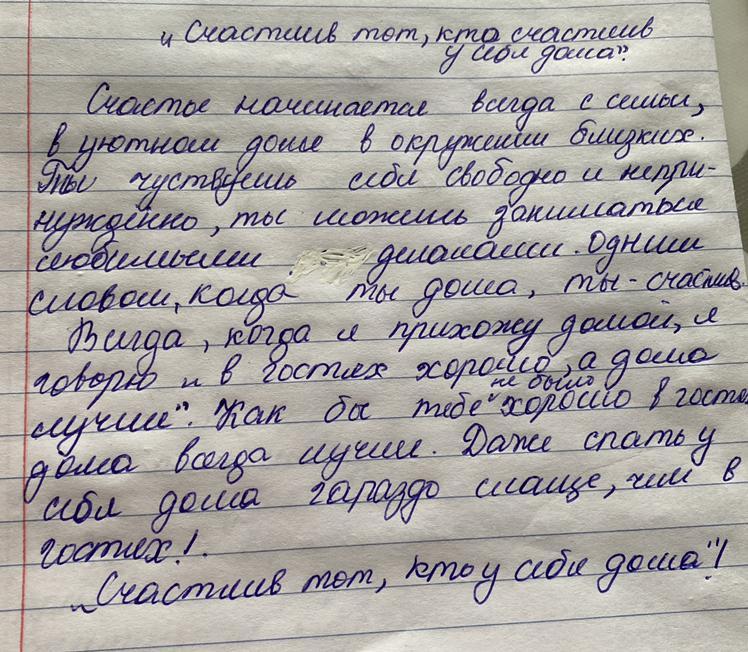 „Счастлив тот, кто счастлив
у себя дома".
Счастье начинается всегда с семьи,
в уютном доме в окружении близких.
Ты чуствуешь себя свободно и непри-
нуждённо, ты можешь заниматься
любимыми делаками. Одним
словом, когда ты дома, ты - счастлив.
Всегда, когда я прихожу домой, я
говорю „в гостях хорошо, а дома
лучше". Как бы тебе не было хорошо в гостях
дома всегда лучше. Даже спать у
себя дома гараздо слаще, чем в
гостях!.
„Счастлив тот, кто у себя дома"!